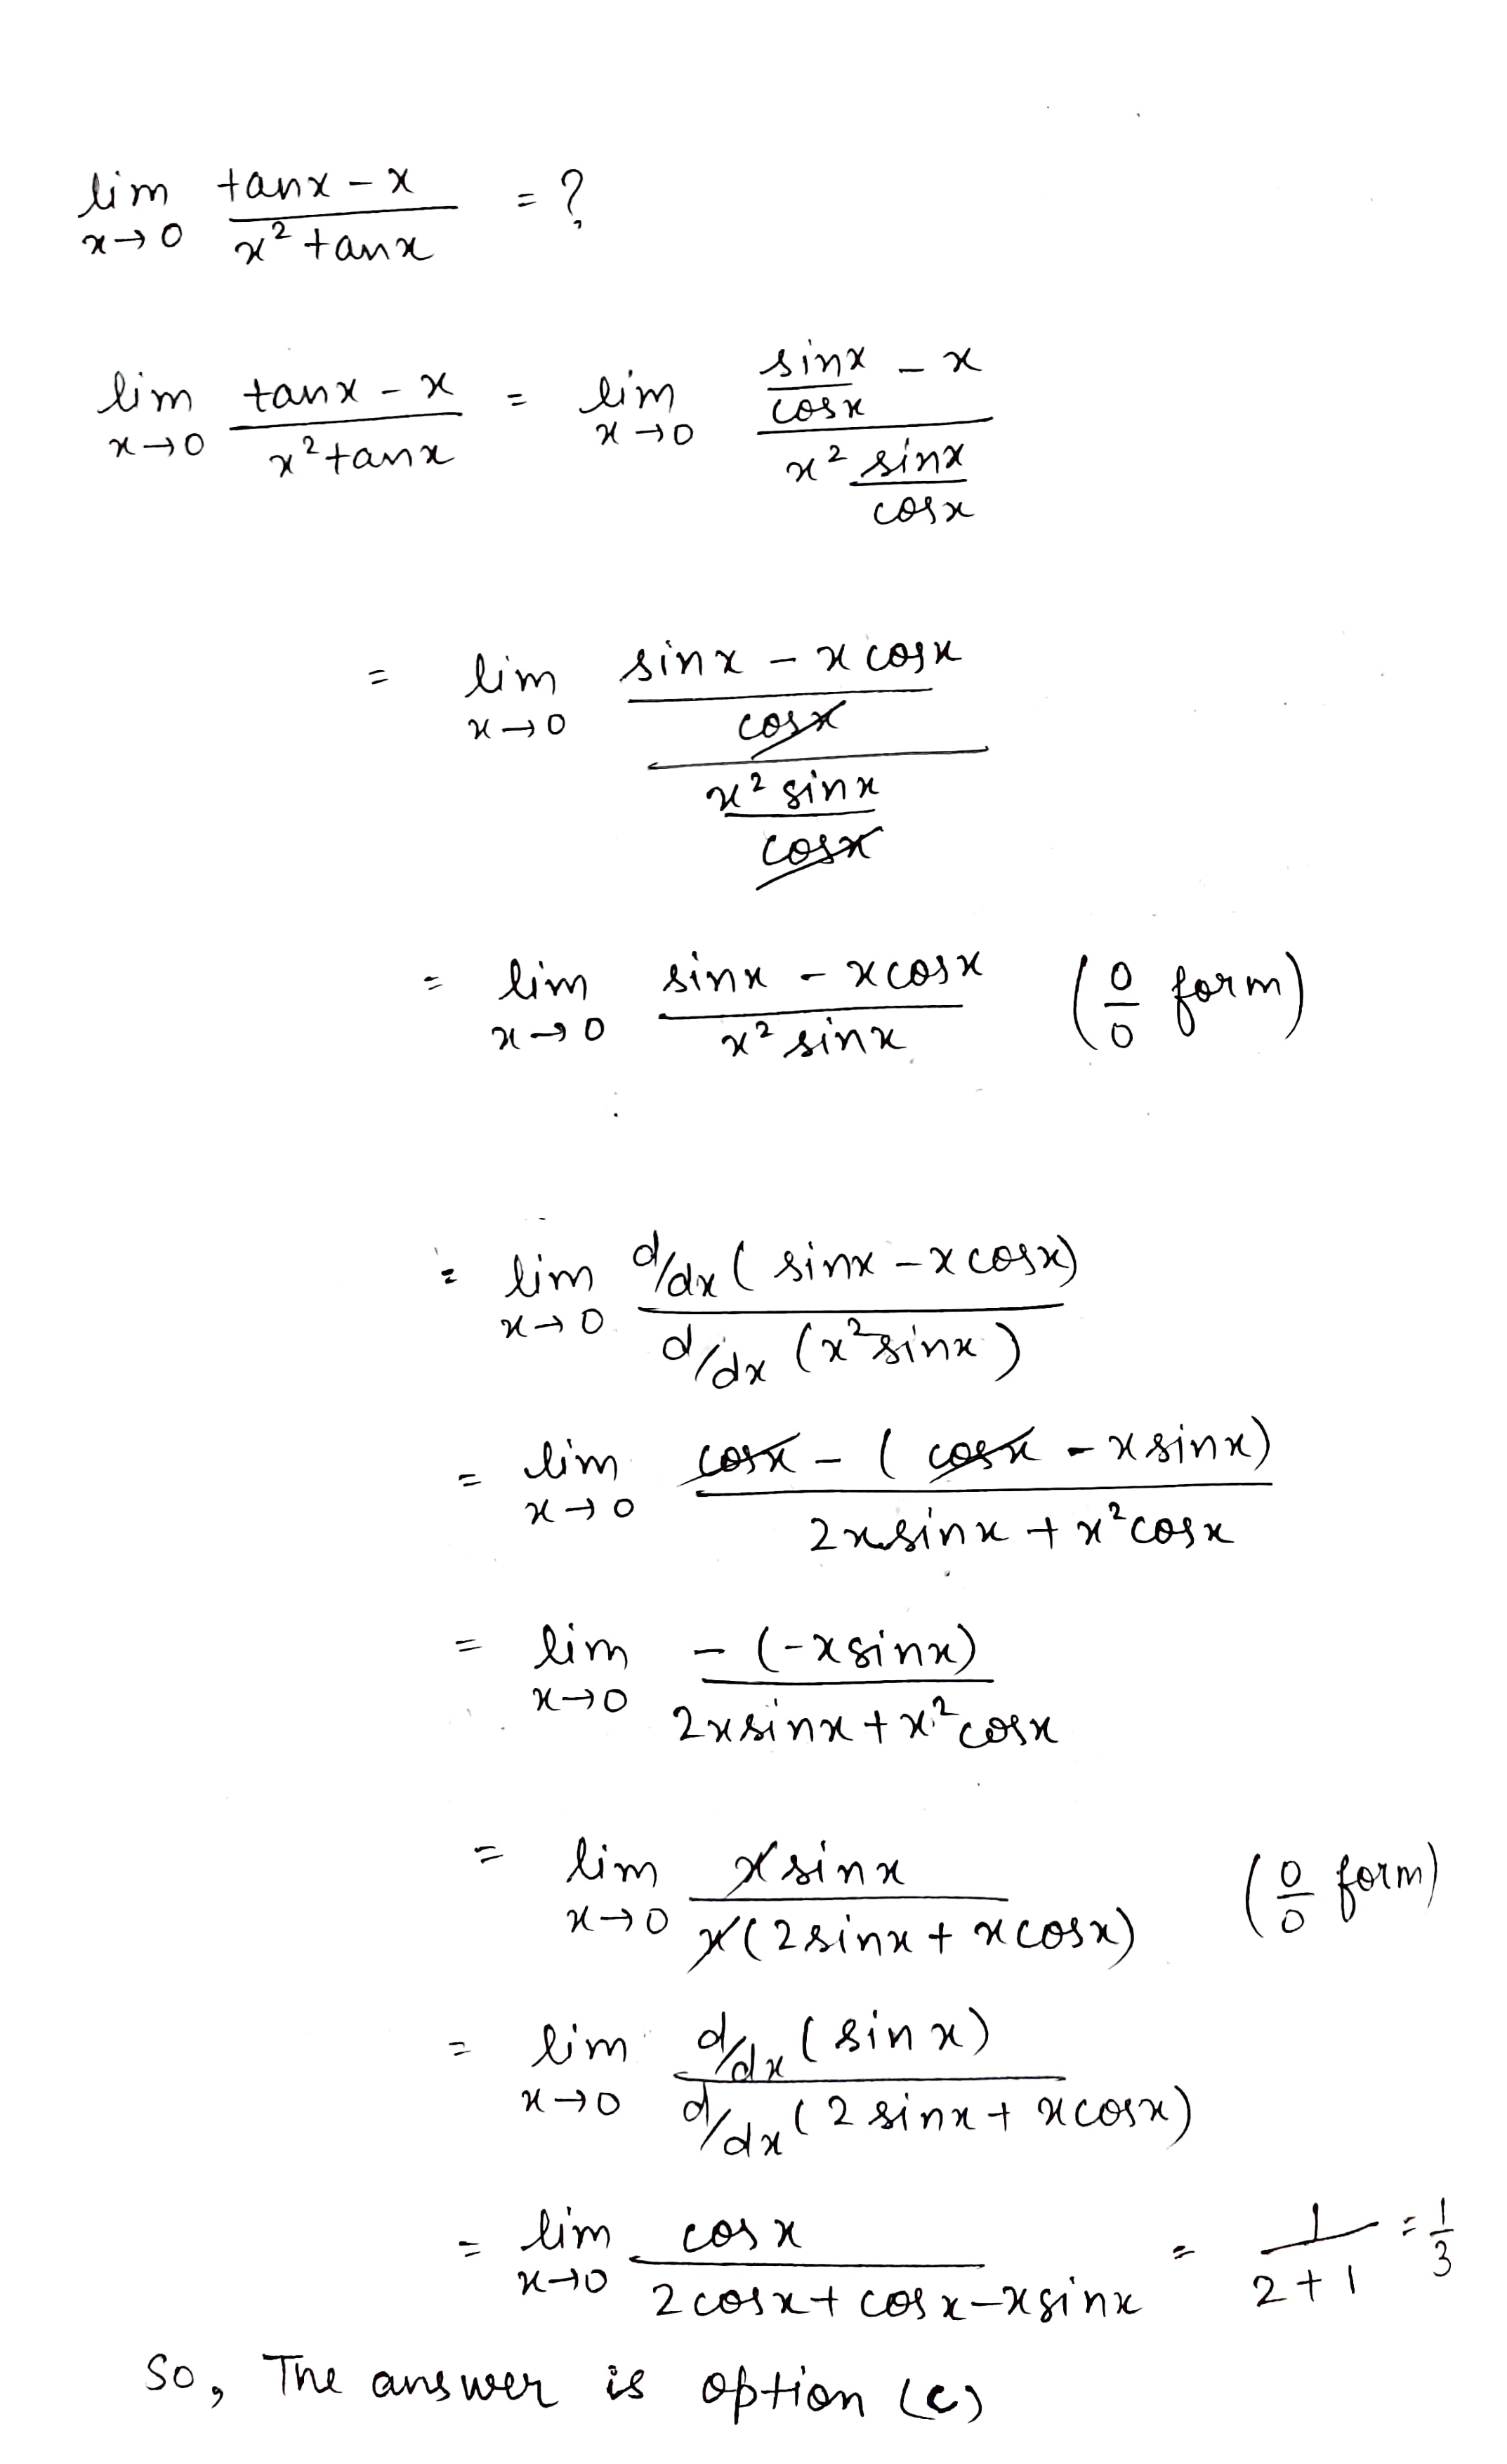 lim x→0 (tanx − x)/(x² tanx) = ?
lim x→0 (tanx − x)/(x² tanx) = lim x→0 (sinx/cosx − x)/(x² sinx/cosx)
= lim x→0 ((sinx − x cosx)/cosx)/((x² sinx)/cosx)
= lim x→0 (sinx − x cosx)/(x² sinx) (0/0 form)
= lim x→0 (d/dx (sinx − x cosx))/(d/dx (x² sinx))
= lim x→0 (cosx − (cosx − x sinx))/(2x sinx + x² cosx)
= lim x→0 (−(−x sinx))/(2x sinx + x² cosx)
= lim x→0 (x sinx)/(x(2 sinx + x cosx)) (0/0 form)
= lim x→0 (d/dx (sinx))/(d/dx (2 sinx + x cosx))
= lim x→0 cosx/(2 cosx + cosx − x sinx) = 1/(2+1) = 1/3
So, The answer is option (c)